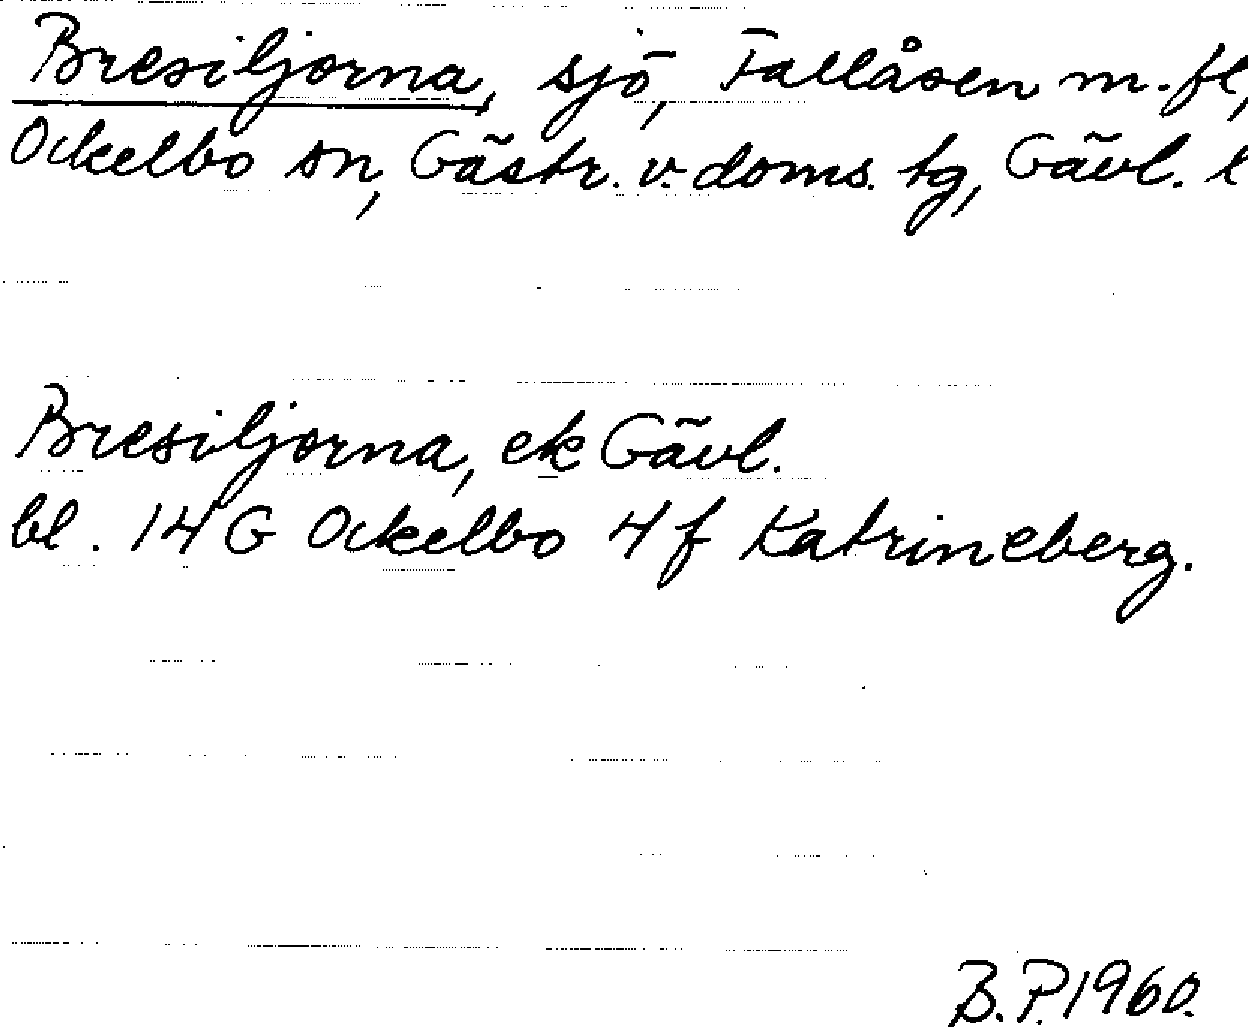 Bresiljorna, sjö, Fallåsen m.fl,
Ockelbo sn, Gästr. v. doms. tg, Gävl. l
Bresiljorna, ek Gävl.
bl. 14 G Ockelbo 4 f Katrineberg.
B.P. 1960.